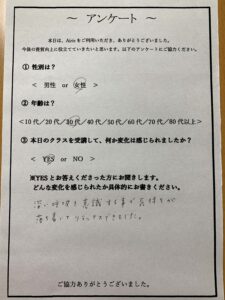 〜 アンケート 〜
本日は、Airisをご利用いただき、ありがとうございました。
今後の資質向上に役立てていきたいと思います。以下のアンケートにご協力ください。
① 性別は？
＜ 男性 or 女性 ＞
② 年齢は？
＜10代／20代／30代／40代／50代／60代／70代／80代以上＞
③ 本日のクラスを受講して、何か変化を感じられましたか？
＜ YES or NO ＞
※YESとお答えくださった方にお聞きします。
どんな変化を感じられたか具体的にお書きください。
深い呼吸を意識する事で気持ちが
落ち着いてリラックスできました。
ご協力ありがとうございました。